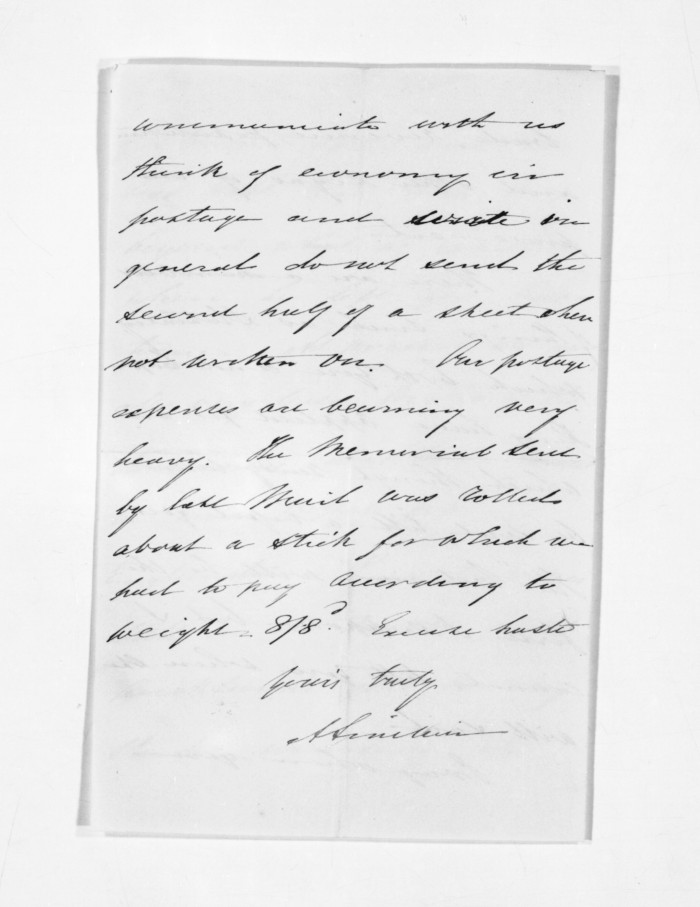 communicate with us
think of economy in
postage and write in
general do not send the
second half of a sheet when
not written on. Our postage
expenses are becoming very
heavy. The Memorial sent
by last Mail was rolled
about a stick for which we
had to pay according to
weight - 8/8d. Excuse haste
Yours truly
A Sinclair